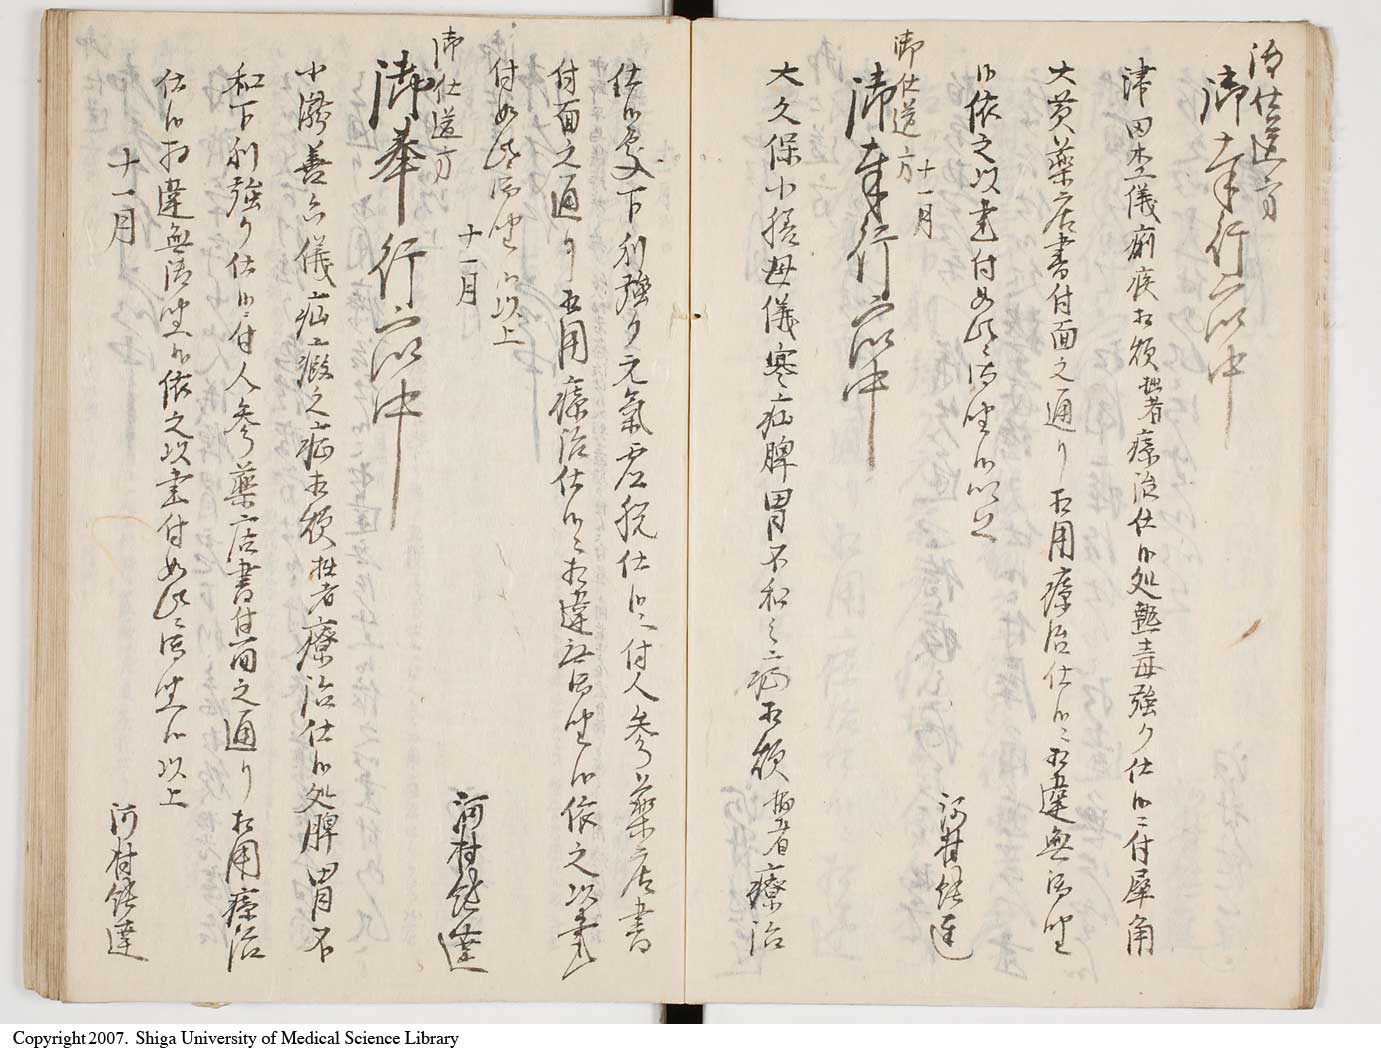 御仕送方
御奉行六人衆中
津田杢儀痢疾相煩拙者療治仕候処熱毒強ク仕候ニ付犀角
大黄薬店書付面之通り相用療治仕候ニ相違無御座
候依之以書付如此ニ御座候以上
十一月
河村純達
御仕送方
御奉行六人衆中
大久保小膳母儀寒疝脾胃不和之病相煩拙者療治
仕候処下利強ク元氣虚脱仕候ニ付人参薬店書
付面之通り相用療治仕候ニ相違無御座候依之以書
付如此御座候以上
十一月
河村純達
御仕送方
御奉行六人衆中
小瀧善六儀疝瘕之症相煩拙者療治仕候処脾胃不
和下利強ク仕候ニ付人参薬店書付面之通り相用療治
仕候相違無御座候依之以書付如此ニ御座候以上
十一月
河村純達
Copyright 2007. Shiga University of Medical Science Library